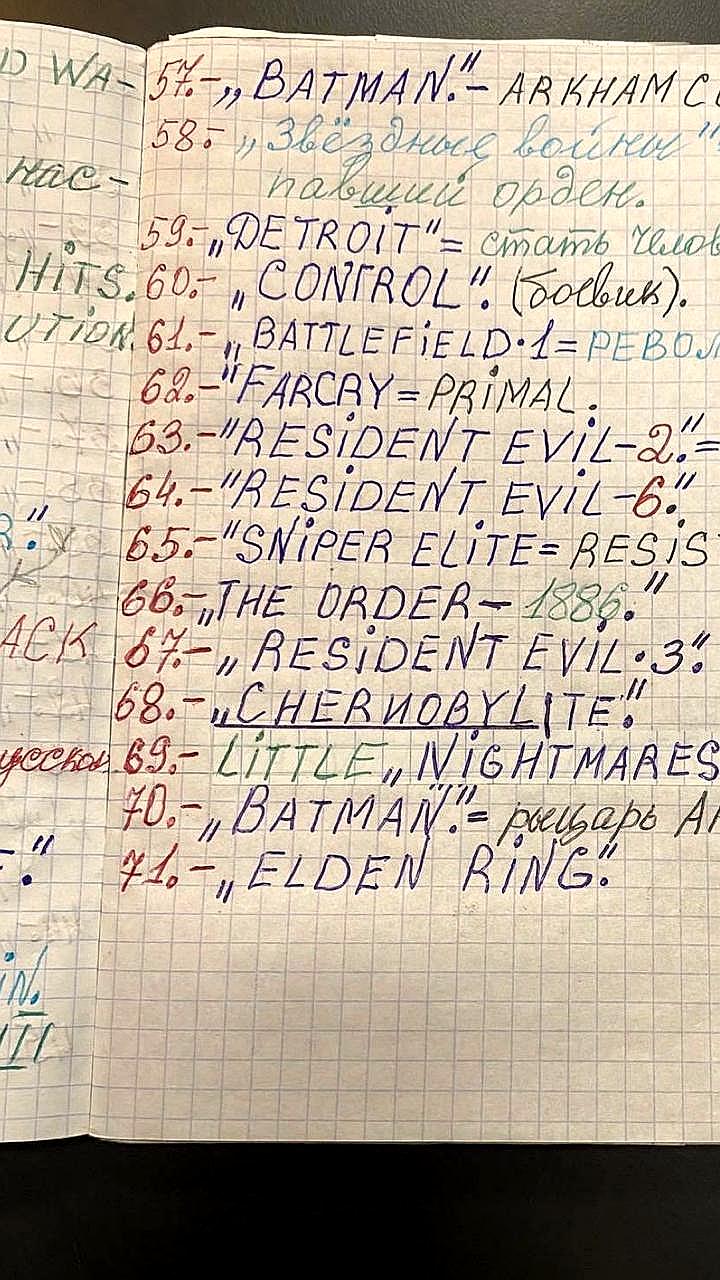 D WA-
нас-
HITS.
UTION.
R."
ACK
усском
F."
IN.
III
57.-„BATMAN."- ARKHAM C
58.- „Звёздные войны":
павший орден.
59.-„DETROIT"= стать челов
60.- „CONTROL". (боевик).
61.-„BATTLEFIELD·1= РЕВОЛ
62.-"FARCRY=PRIMAL.
63.-"RESIDENT EVIL-2."=
64.-"RESIDENT EVIL-6."
65.-"SNIPER ELITE=RESIST
66.-„THE ORDER- 1886."
67.-„RESIDENT EVIL·3."
68.-„CHERNOBYLITE."
69.- LITTLE „NIGHTMARES
70.-„BATMAN."= рыцарь АР
71.-„ELDEN RING."